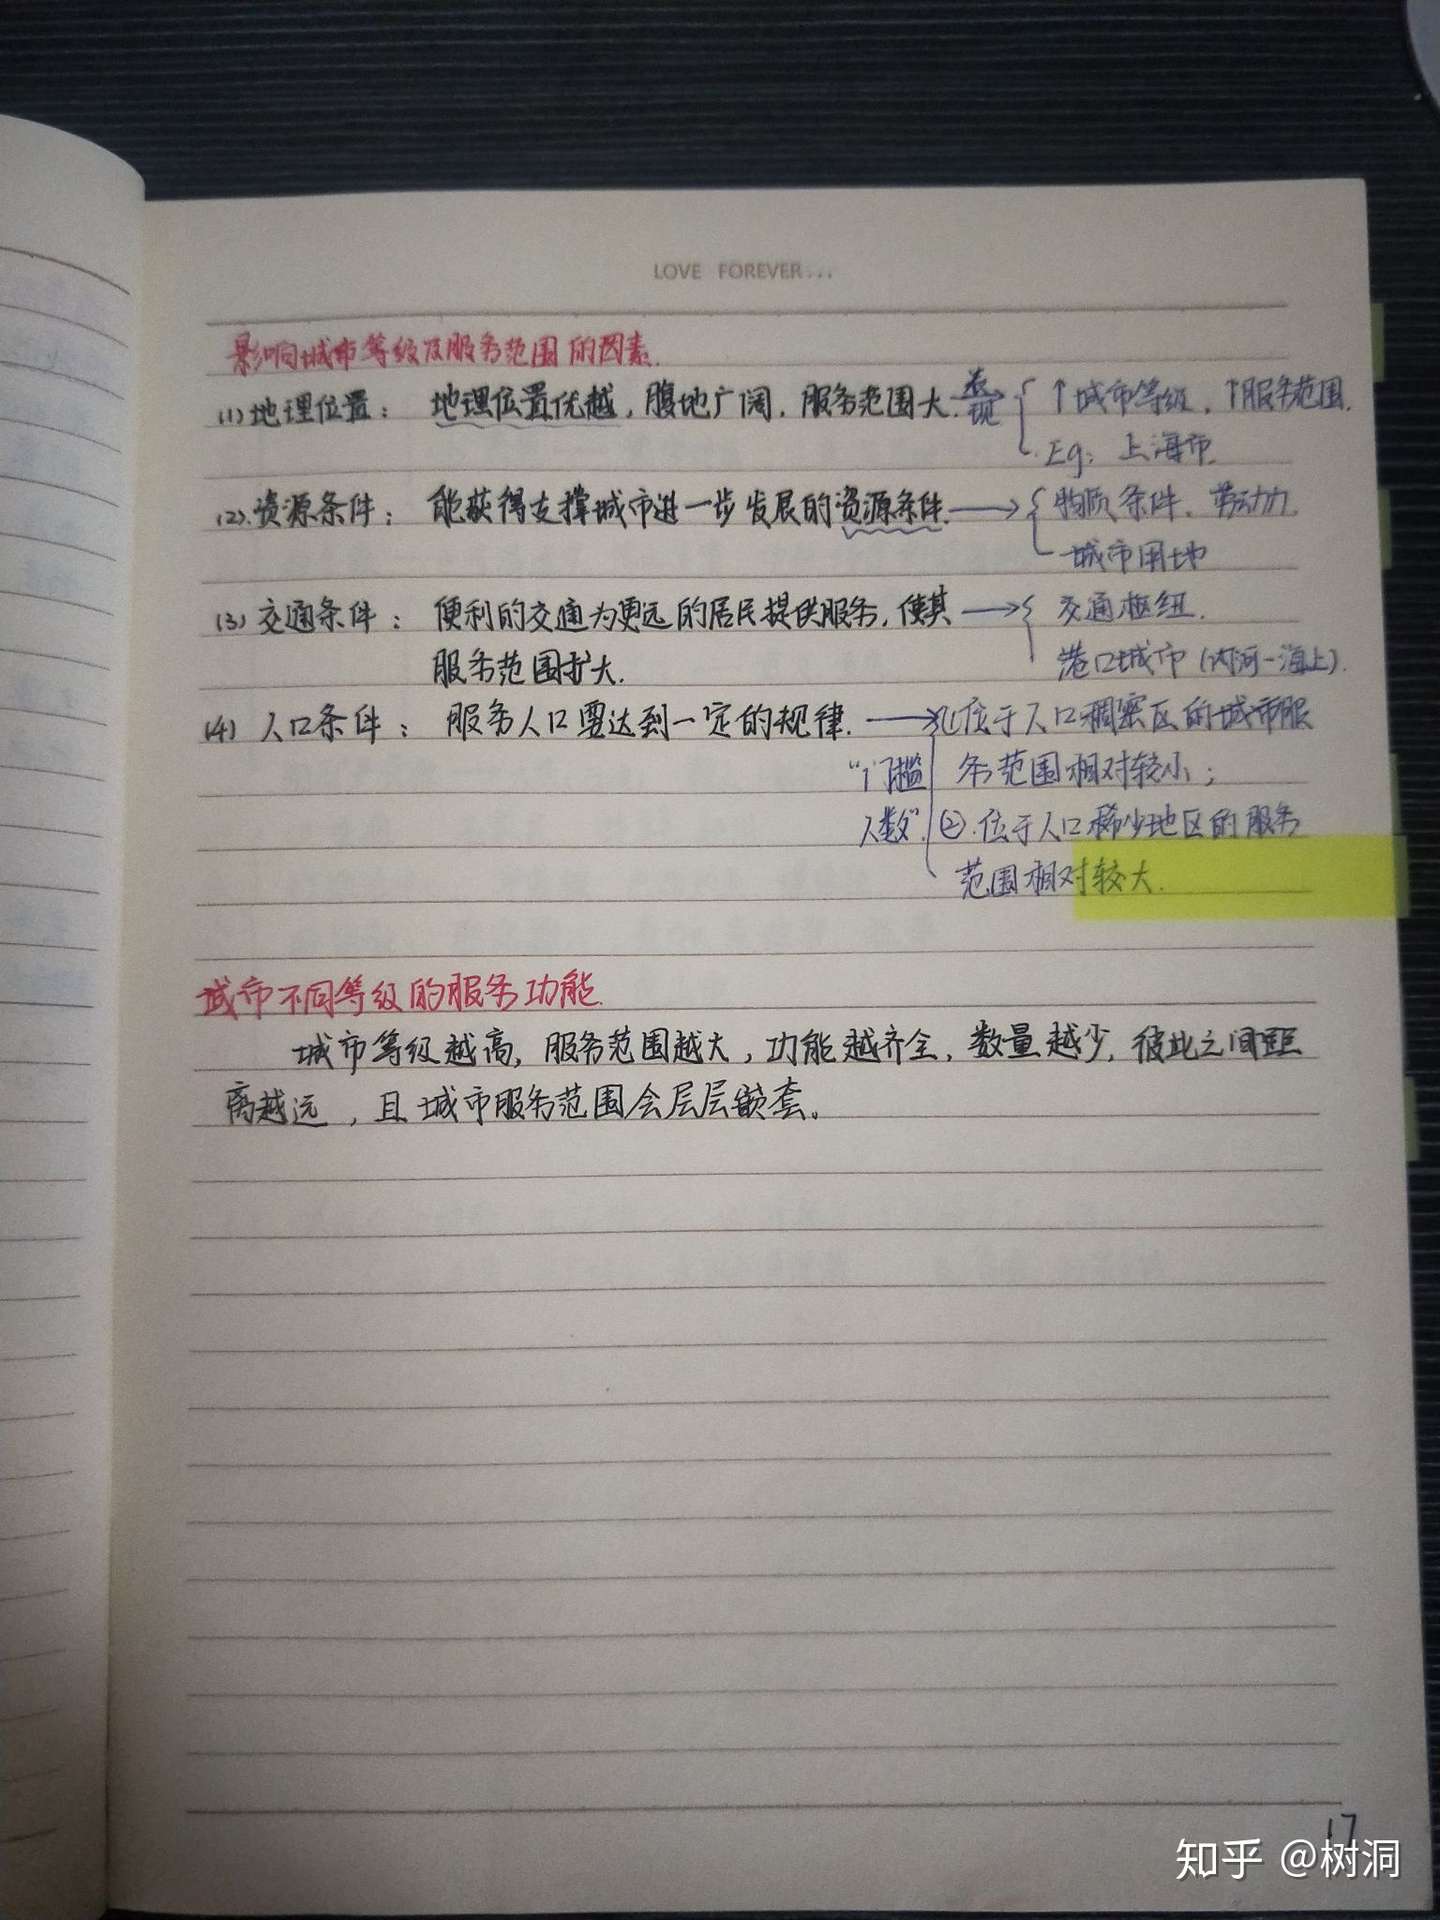 LOVE FOREVER...
影响城市等级及服务范围的因素.
(1) 地理位置： 地理位置优越，腹地广阔，服务范围大. 表现 ↑城市等级，↑服务范围.
Eg：上海市.
(2).资源条件： 能获得支撑城市进一步发展的资源条件. → 物质条件、劳动力.
城市用地
(3) 交通条件： 便利的交通为更远的居民提供服务，使其 → 交通枢纽.
服务范围扩大. 港口城市（内河－海上）.
(4) 人口条件： 服务人口要达到一定的规律. → 位于人口稠密区的城市服
“门槛 务范围相对较小；
人数”. ②.位于人口稀少地区的服务
范围相对较大.
城市不同等级的服务功能.
城市等级越高，服务范围越大，功能越齐全，数量越少，彼此之间距
离越远，且城市服务范围会层层嵌套。
17
知乎 @树洞